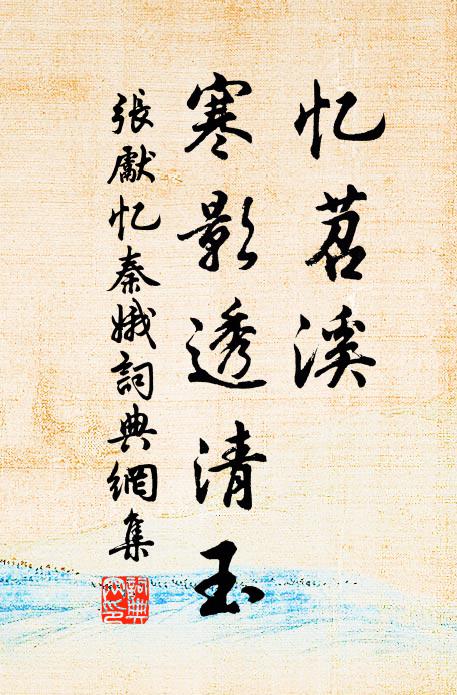 忆苕溪
寒影透清玉
張獻忆秦娥詞典網集